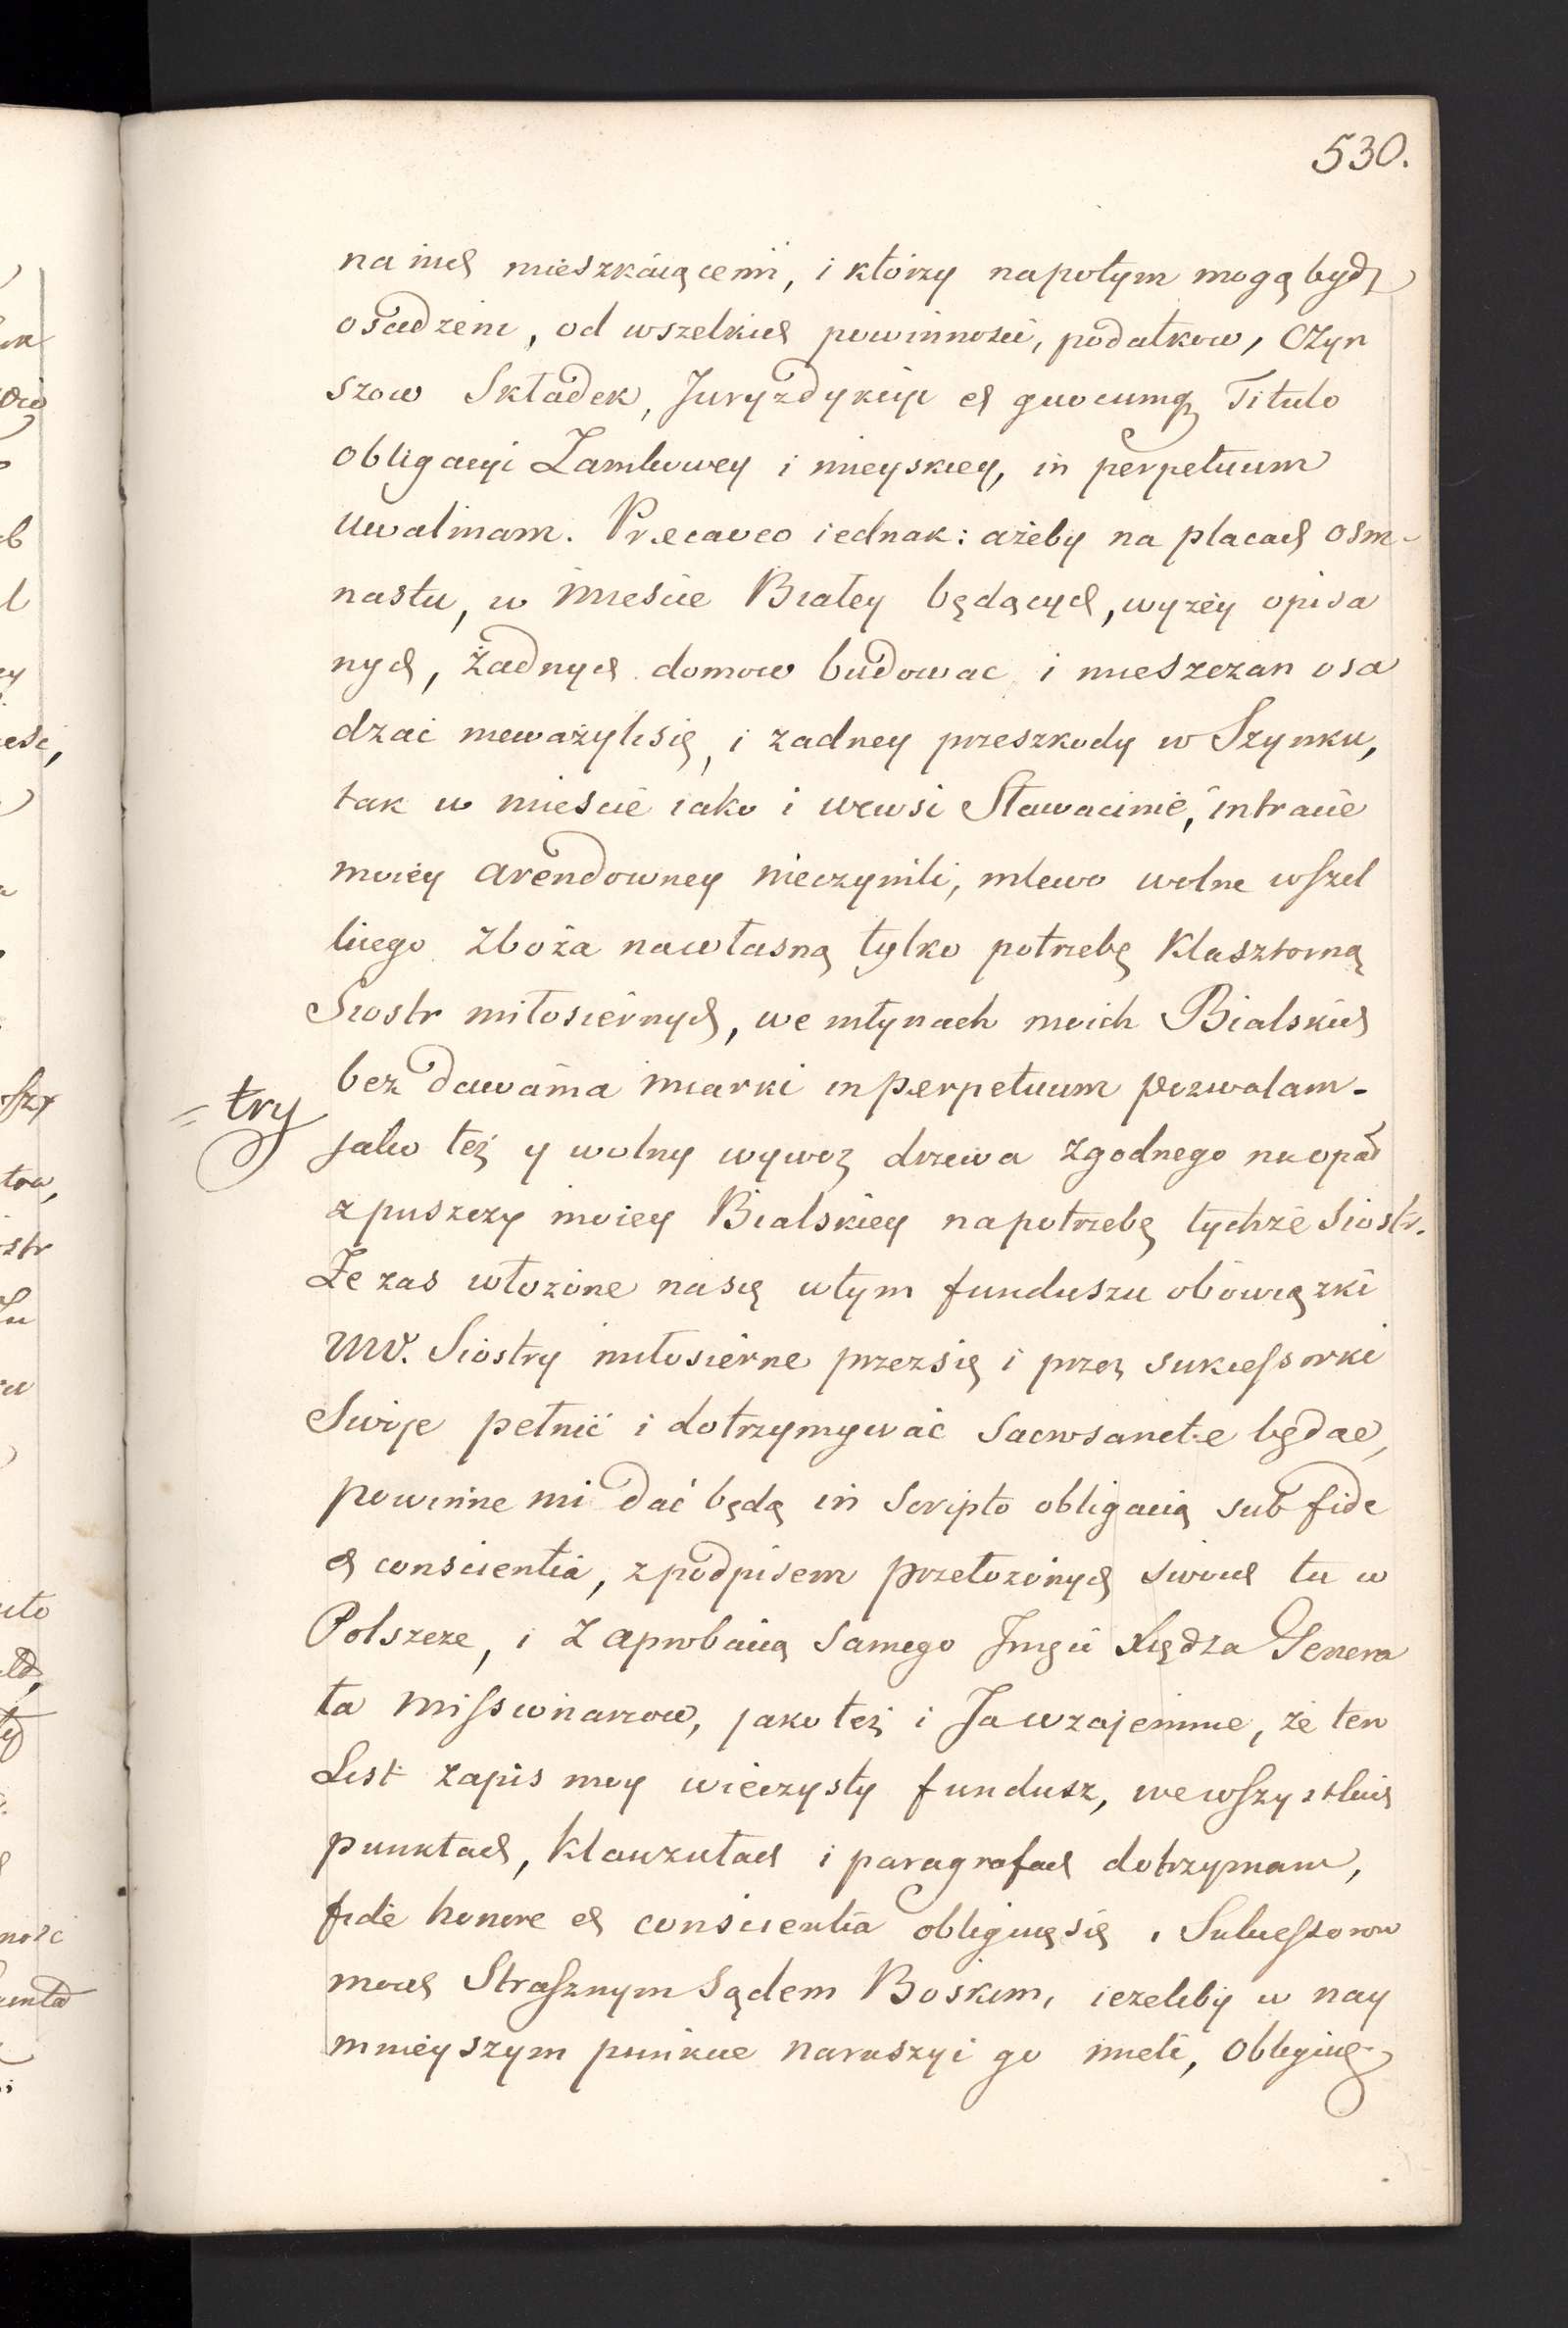 530.
na nich mieszkaiącemi, i którzy napotym mogą bydz
osadzeni, od wszelkich powinności, podatkow, Czyn
szow Składek, Juryzdykcyi et quocumq Titulo
obligacyi Zamkowey i mieyskiey, in perpetuum
uwalniam. Præcaveo iednak: ażeby na placach osm-
nastu, w mieście Białey będących, wyżey opisa
nych, żadnych domow budowac i mieszczan osa
dzać nieważyli się, i zadney przeszkody w Szynku,
tak w mieście iako i wewsi Sławacinie, intracie
moiey arendowney nieczynili, mlewo wolne wszel
kiego zboża nawłasną tylko potrzebę Klasztorną
Siostr miłosiernych, we młynach moich Bialskich
bez dawania miarki in perpetuum pozwalam.
= try
jako też y wolny wywoz drzewa zgodnego na opał
z puszczy moiey Bialskiey na potrzebę tychże Siostr.
Że zas włożone na się w tym funduszu obowiązki
WW. Siostry miłosierne przez się i przez sukcessorki
Swoje pełnić i dotrzymywać sacrosancte będąc,
powinne mi dać będą in scripto obligacią sub fide
et conscientia, z podpisem przełożonych swoich tu w
Polszcze, i z aprobacią samego Jmści Xiędza Genera
ła Missionarzow, jako też i Ja wzajemnie, że ten
List zapis moy wieczysty fundusz, we wszystkich
punktach, klauzułach i paragrafach dotrzymam,
fide honore et conscientia obliguię się, Sukcessorow
moich Strasznym Sądem Boskim, ieżeliby w nay
mnieyszym punkcie naruszyć go mieli, obliguię